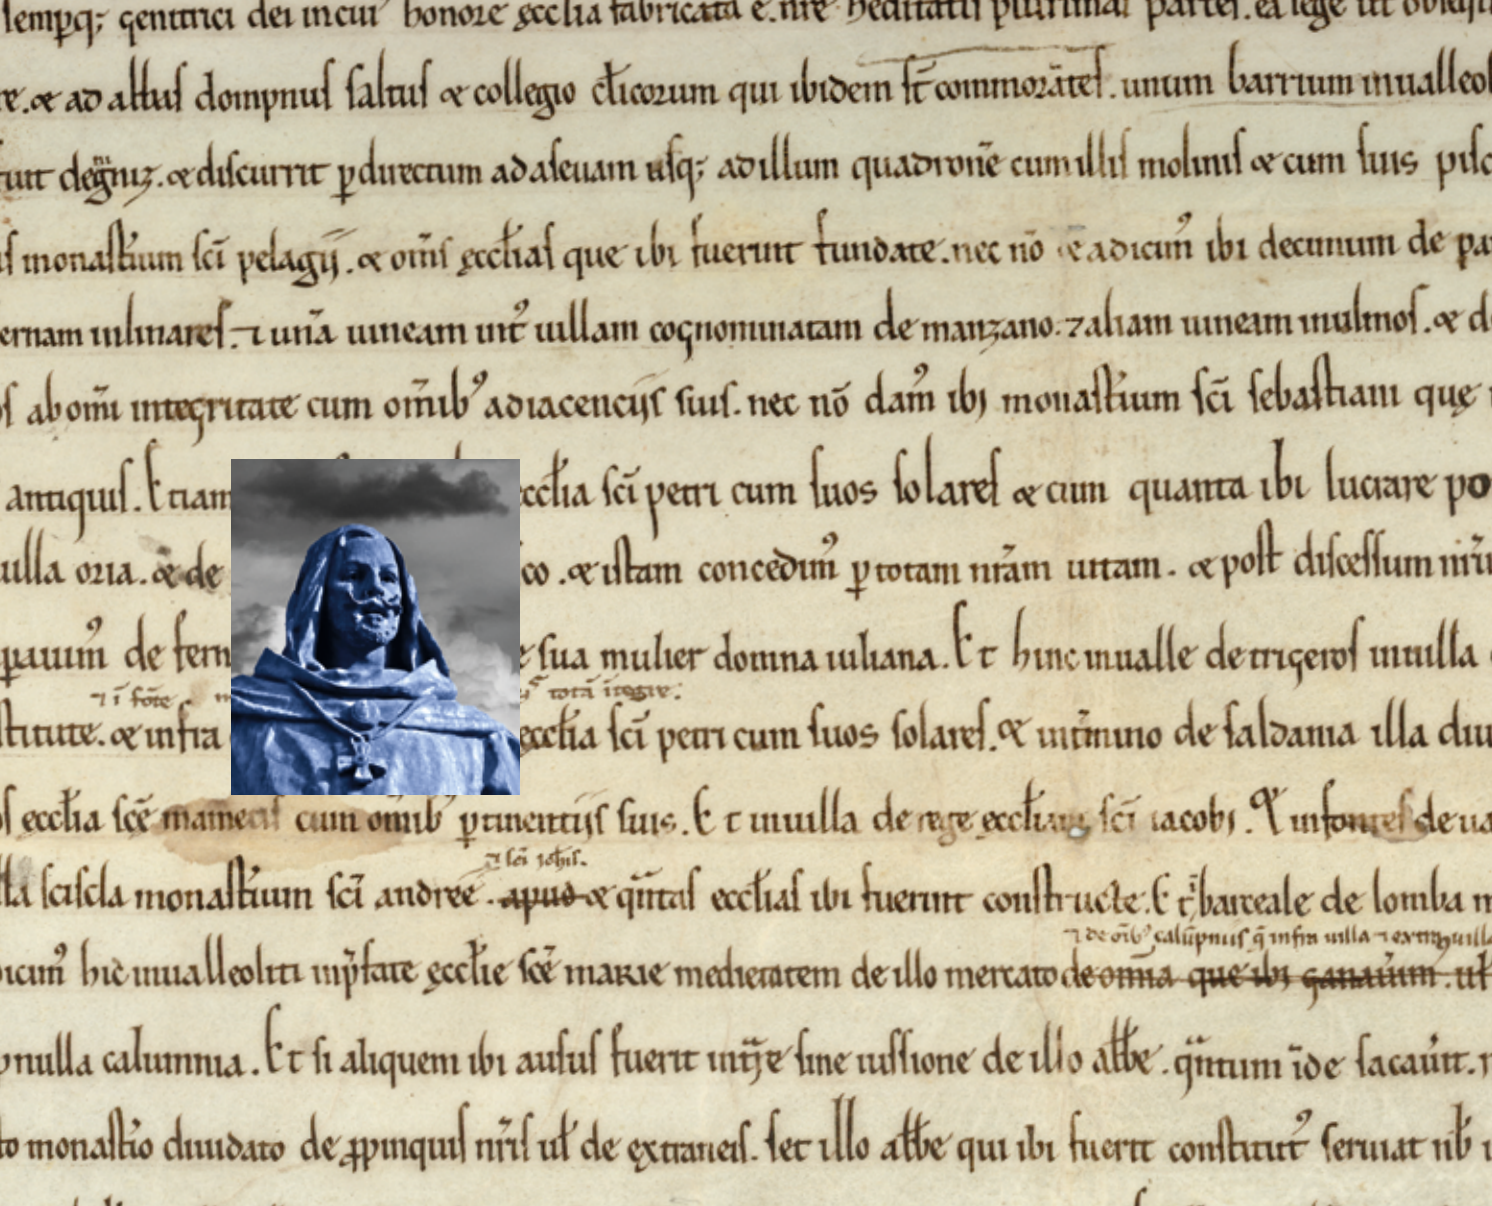 sempq; genitrici dei in cuiꝰ honore ęcclia fabricata ē. nr̄e heditatis plurimas partes. ea lege ut
re. & ad abbas dompnus saltus & collegio cl̄icorum qui ibidem st̄ commorātes. unum barrium in ualleol
& discurrit ꝑ directum ad aseuam usq; ad illum quadronē cum illis molinis & cum suis pisc
monast̄ium sc̄i pelagij. & om̄s ęccl̄ias que ibi fuerunt fundate. nec nō & adicimꝰ ibi decimum de pa
ernam in linares. ⁊ unā uineam int̄ uillam cognominatam de manzano. ⁊ aliam uineam in ulmos. & d
ab om̄i integritate cum om̄ibꝰ adiacencijs suis. nec nō damꝰ ibi monast̄ium sc̄i sebastiani quę
antiquis. Etiam ecclia sc̄i petri cum suos solares & cum quanta ibi lucrare po
uilla oria. & de co. & istam concedimꝰ ꝑ totam nr̄am uitam. & post discessum nr̄u
de fern sua mulier domna iuliana. Et hinc in ualle de trigeros in uilla
⁊ ī fōte totā īt̄egre.
stitute. & infra ęccl̄ia sc̄i petri cum suos solares. & in t̄mino de saldania illa diu
eccl̄ia sc̄e mametis cum om̄ibꝰ ꝑtinentijs suis. Et in uilla de rege ęccl̄iam sc̄i iacobi. & in fontes de ua
⁊ sc̄i ioh̄is.
lla sciscla monast̄ium sc̄i andree. apud & qn̄tas eccl̄ias ibi fuerint constructe. Et barreale de lomba
⁊ de om̄ibꝰ calūpniis q̄ infra uilla ⁊ extra uilla
dicimꝰ hic in ualleoliti in p̄fate ęccl̄ie sc̄e marie medietatem de illo mercato de omnia que ibi ganauerint. ul̄
nulla calumnia. Et si aliquem ibi ausus fuerit sine iussione de illo abb̄e. qn̄tum īde sacau̅it.
to monast̄io diuidato de ꝓpinquis nr̄is ul̄ de extraneis. set illo abb̄e qui ibi fuerit constitutꝰ seruiat